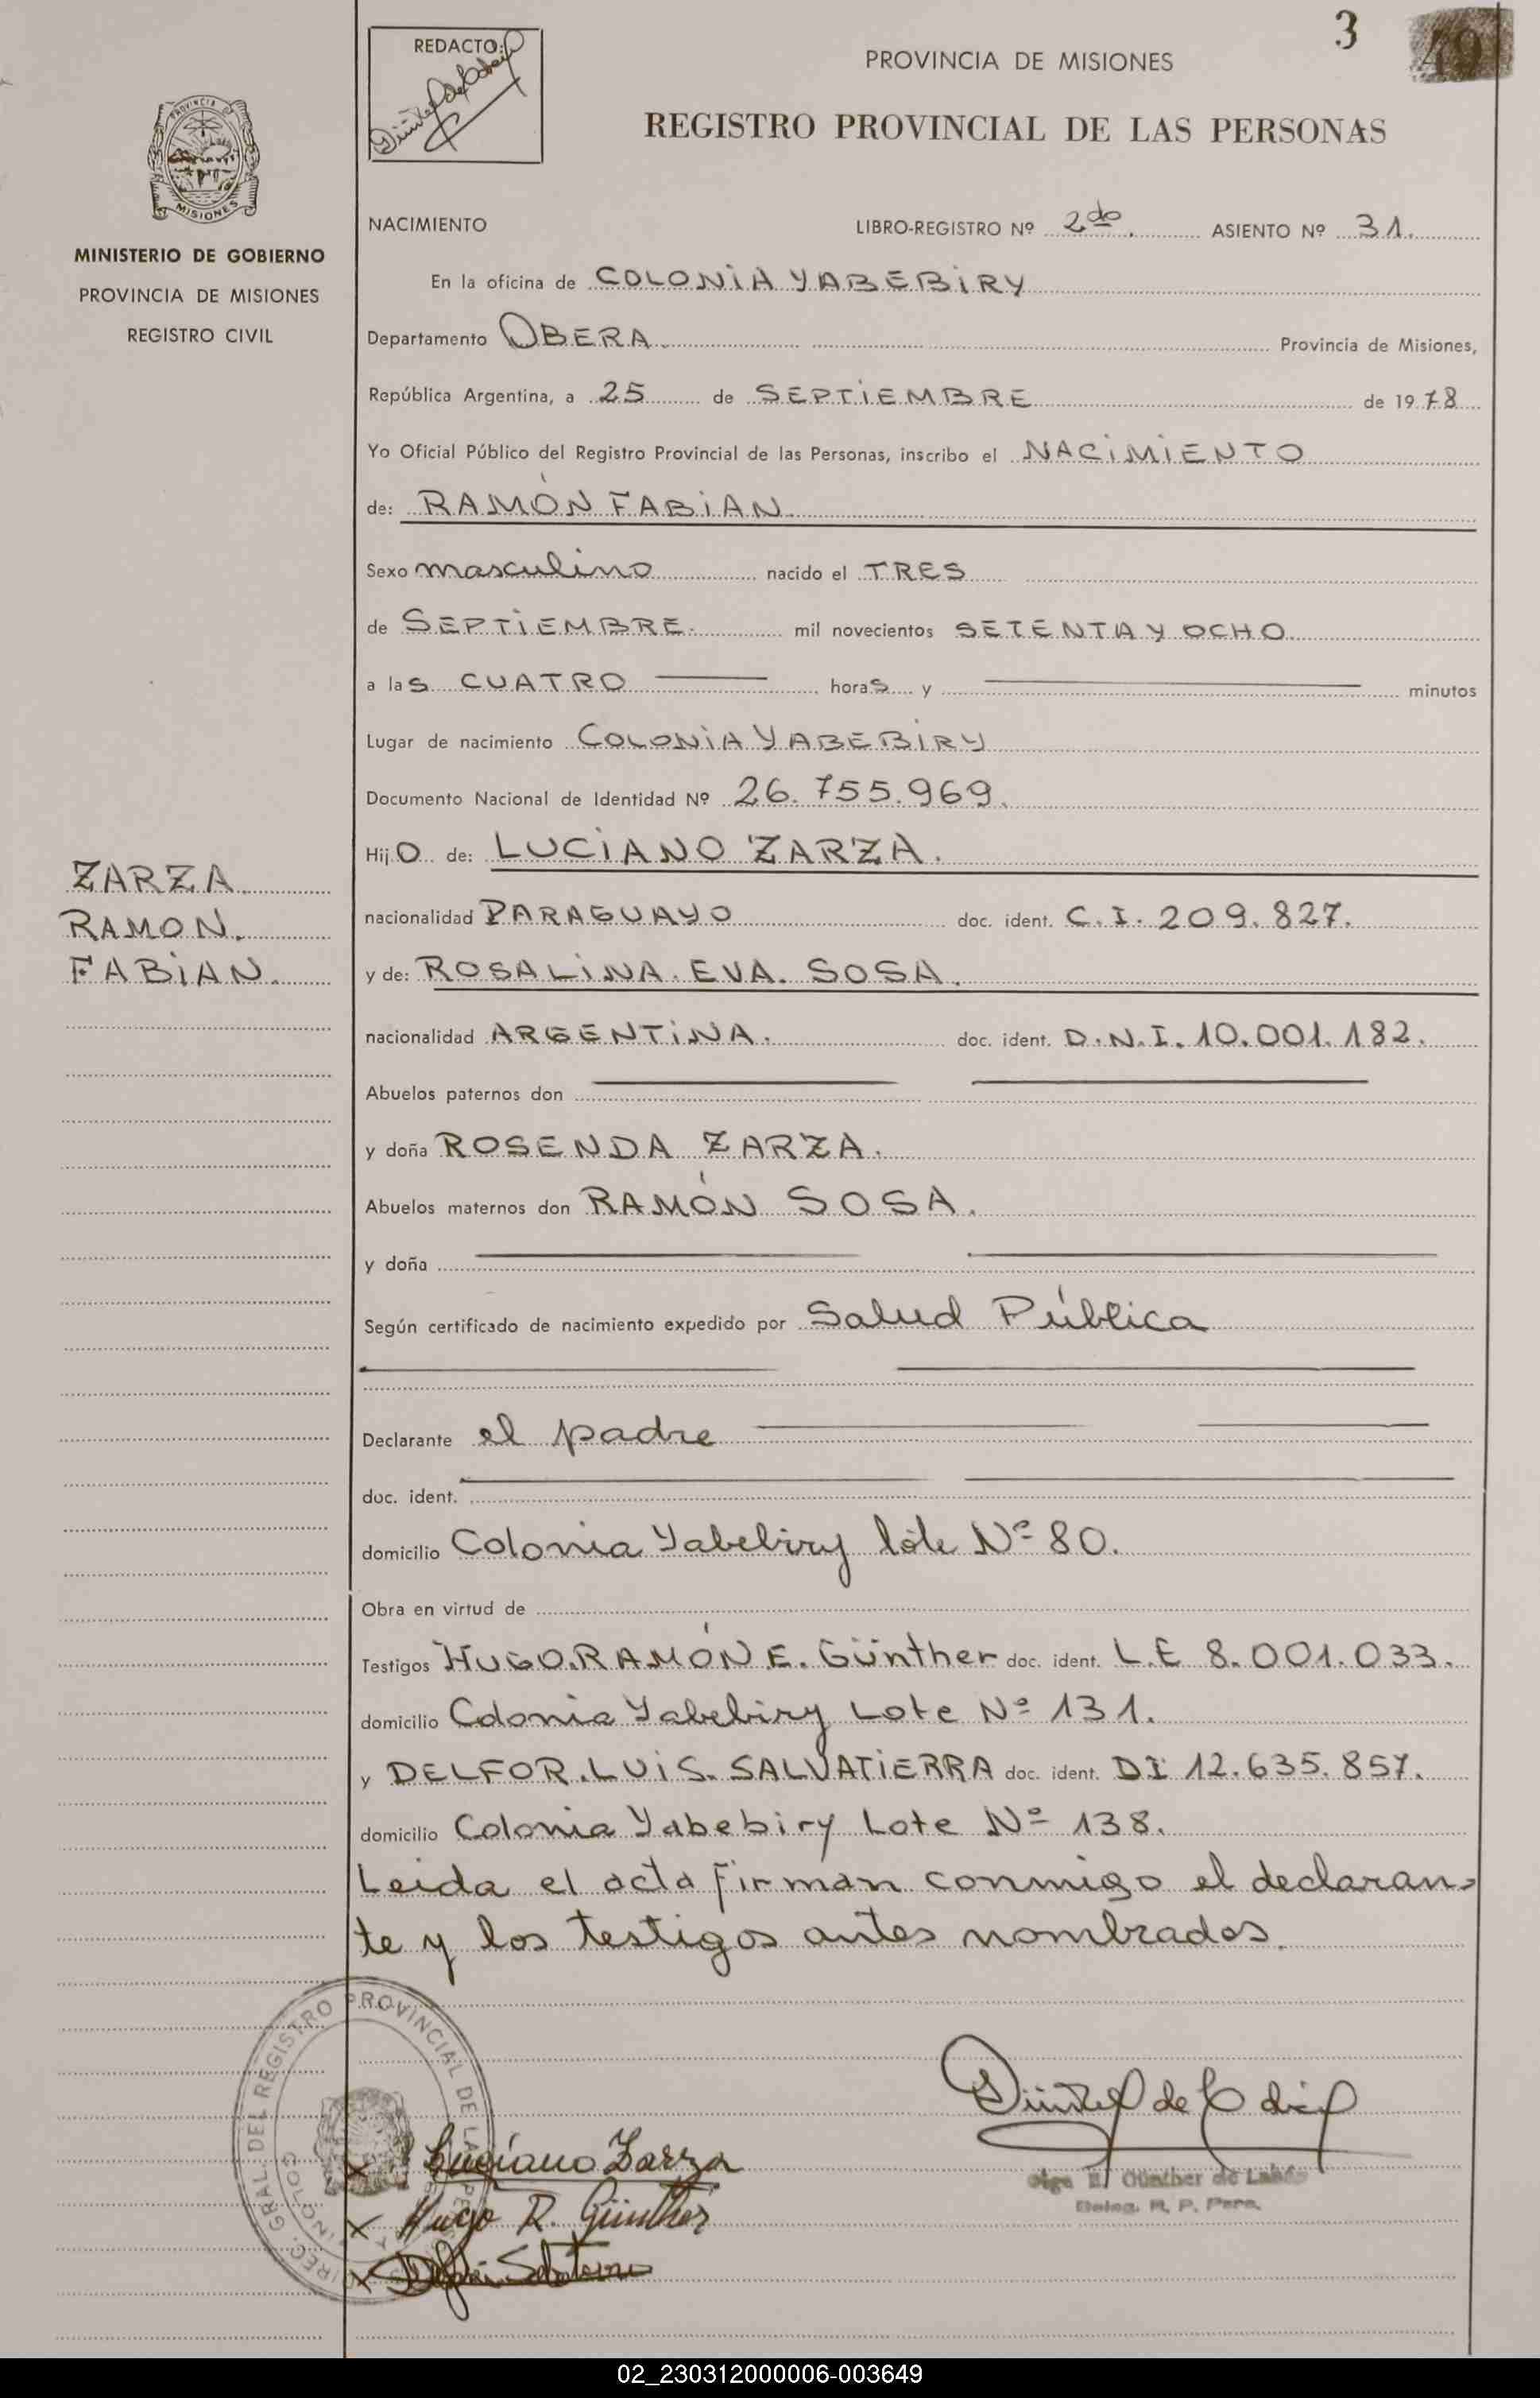 3
REDACTO:
PROVINCIA DE MISIONES
REGISTRO PROVINCIAL DE LAS PERSONAS
PROVINCIA DE
MISIONES
MINISTERIO DE GOBIERNO
PROVINCIA DE MISIONES
REGISTRO CIVIL
NACIMIENTO LIBRO-REGISTRO Nº 2do. ASIENTO Nº 31.
En la oficina de COLONIA YABEBIRY
Departamento OBERA. Provincia de Misiones,
República Argentina, a 25 de SEPTIEMBRE de 1978
Yo Oficial Público del Registro Provincial de las Personas, inscribo el NACIMIENTO
de: RAMÓN FABIAN.
Sexo masculino nacido el TRES
de SEPTIEMBRE. mil novecientos SETENTA Y OCHO
a las CUATRO horas y minutos
Lugar de nacimiento COLONIA YABEBIRY
Documento Nacional de Identidad Nº 26.755.969.
Hijo de: LUCIANO ZARZA.
ZARZA
RAMON.
FABIAN.
nacionalidad PARAGUAYO doc. ident. C.I. 209.827.
y de: ROSALINA. EVA. SOSA.
nacionalidad ARGENTINA. doc. ident. D.N.I. 10.001.182.
Abuelos paternos don
y doña ROSENDA ZARZA.
Abuelos maternos don RAMÓN SOSA.
y doña
Según certificado de nacimiento expedido por Salud Pública
Declarante el padre
doc. ident.
domicilio Colonia Yabebiry lote Nº 80.
Obra en virtud de
Testigos HUGO.RAMÓN E. Günther doc. ident. L.E 8.001.033.
domicilio Colonia Yabebiry Lote Nº 131.
y DELFOR.LUIS. SALVATIERRA doc. ident. DI 12.635.857.
domicilio Colonia Yabebiry Lote Nº 138.
Leida el acta firman conmigo el declaran-
te y los testigos antes nombrados.
DIREC. GRAL. DEL REGISTRO PROVINCIAL DE LAS PERS
Luciano Zarza
Hugo R. Günther
Olga E. Günther de
Deleg. R. P. Pers.
02_230312000006-003649